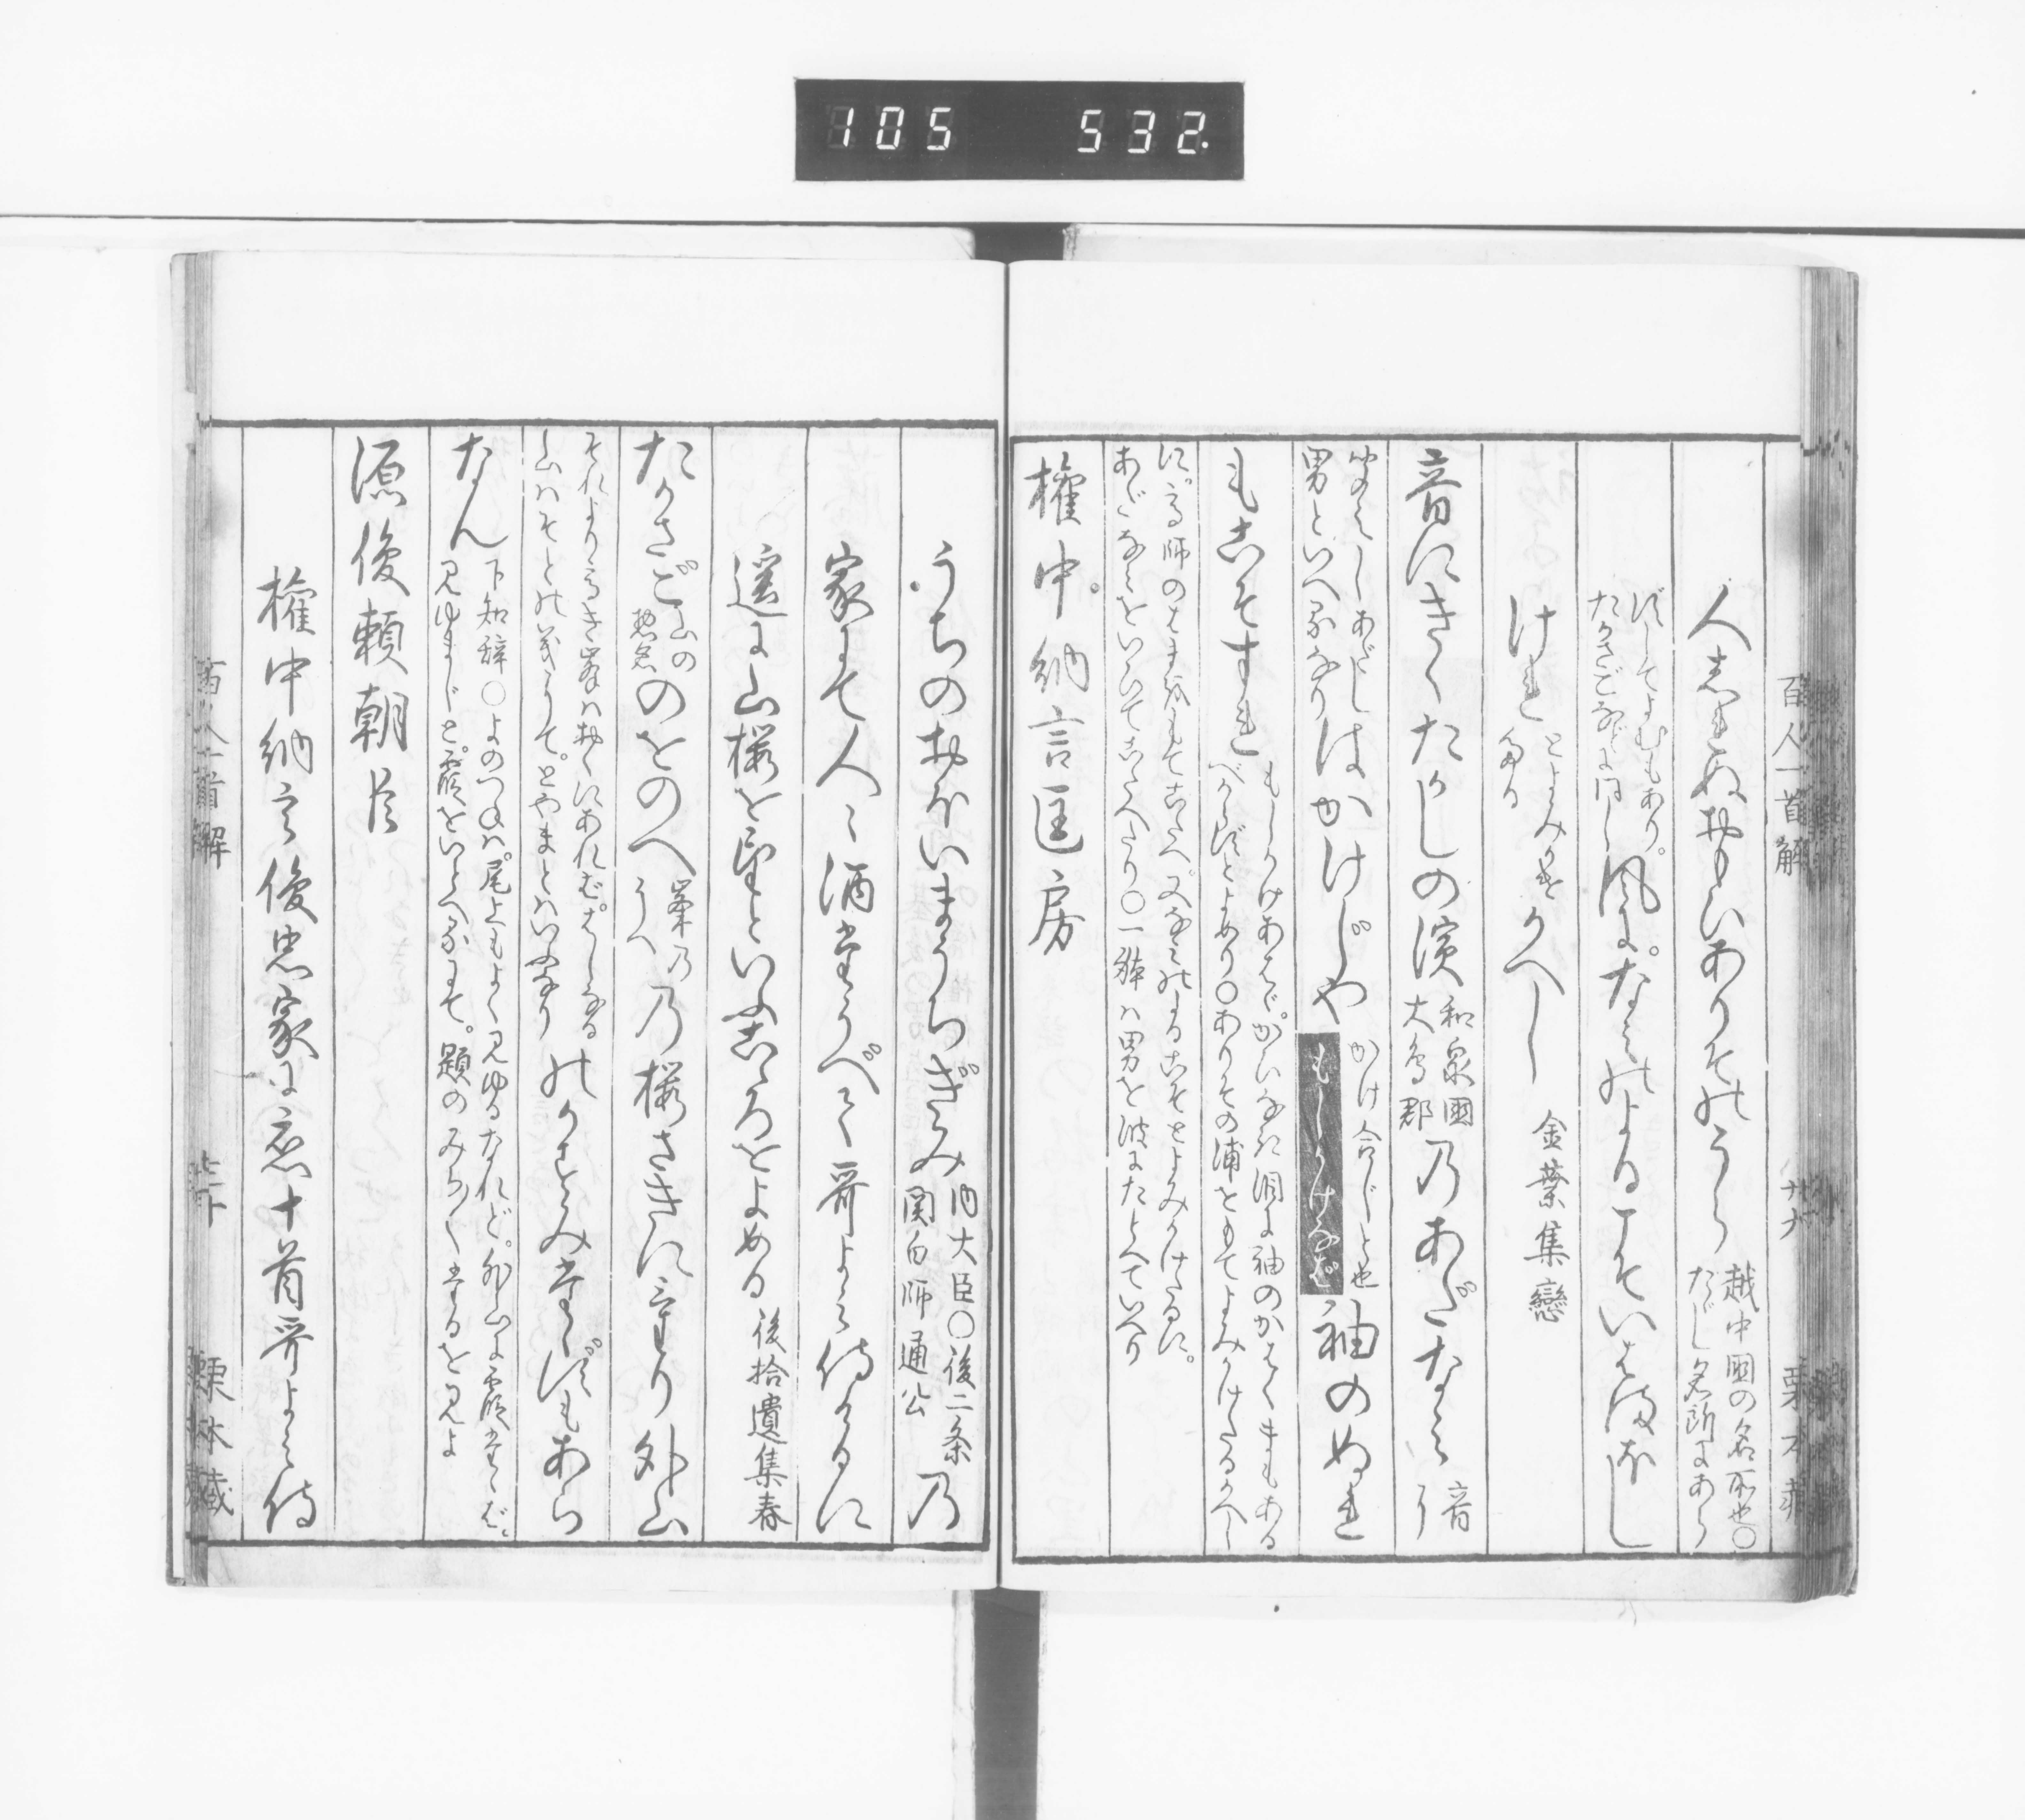 105 532.
百人一首解
人しれぬおもひありそのうら
越中国の名所也○
たゞし名所にあら
ずしてよむもあり。
たかさごなどに同し
風に。なみのよるこそいはまほし
けれ
とよみかけ
たる
かへし
金葉集戀
音にきくたかしの濱
和泉国
大鳥郡
乃あだなみ
音
男といへるなり
はかけじや
かけ合じと也
もしかけなば
袖のぬれ
もこそすれ
もしかけあはゞ。かひなき泪に袖のかはくまもある
べからずとよめり○ありその浦をもてよみかけたるかへし
に。高師のはまをもてこたへ。又なみのよるこそとよみかけたるに。
あだなみをいひてこたへたり○一躰ハ男を波にたとへていへり
權中納言匡房
うちのおほいまうちぎみ
内大臣○後二条
関白師通公
乃
家にて人々酒たうべて哥よみ侍けるに
遥に山櫻を望といふこゝろをよめる
後拾遺集春
たかさご
山の
惣名
のをのへ
峯乃
うへ
乃櫻さきにけり外山
それより高き峯はおくにあれば。はしなる
山ハそとの義にて。とやまとハいふなり
のかすみたゝずもあら
なん
下知辞○よのつねハ。尾上もよく見ゆるなれど。外山に霞たゝば。
見ゆまじと。霞をいとへるにて。題のみちみちたるを見よ
源俊頼朝臣
權中納言俊忠家に恋十首哥よみ侍
百人一首解